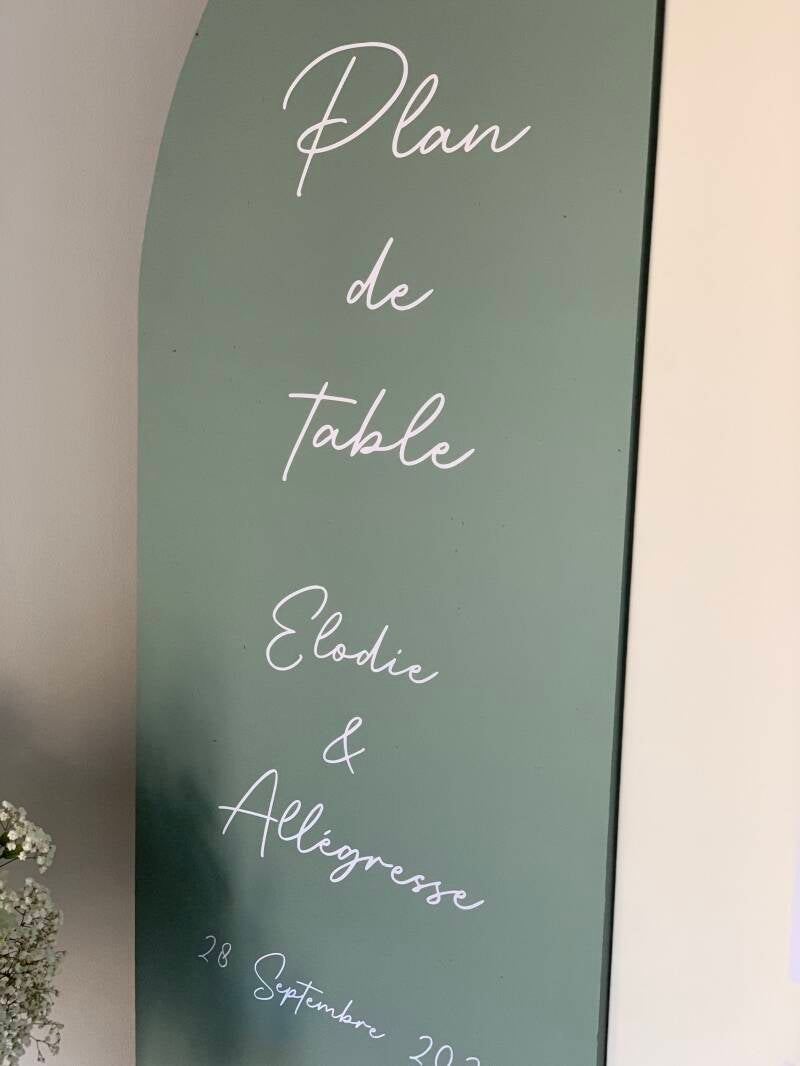 Plan
de
Table
Elodie
&
Allégresse
28 Septembre